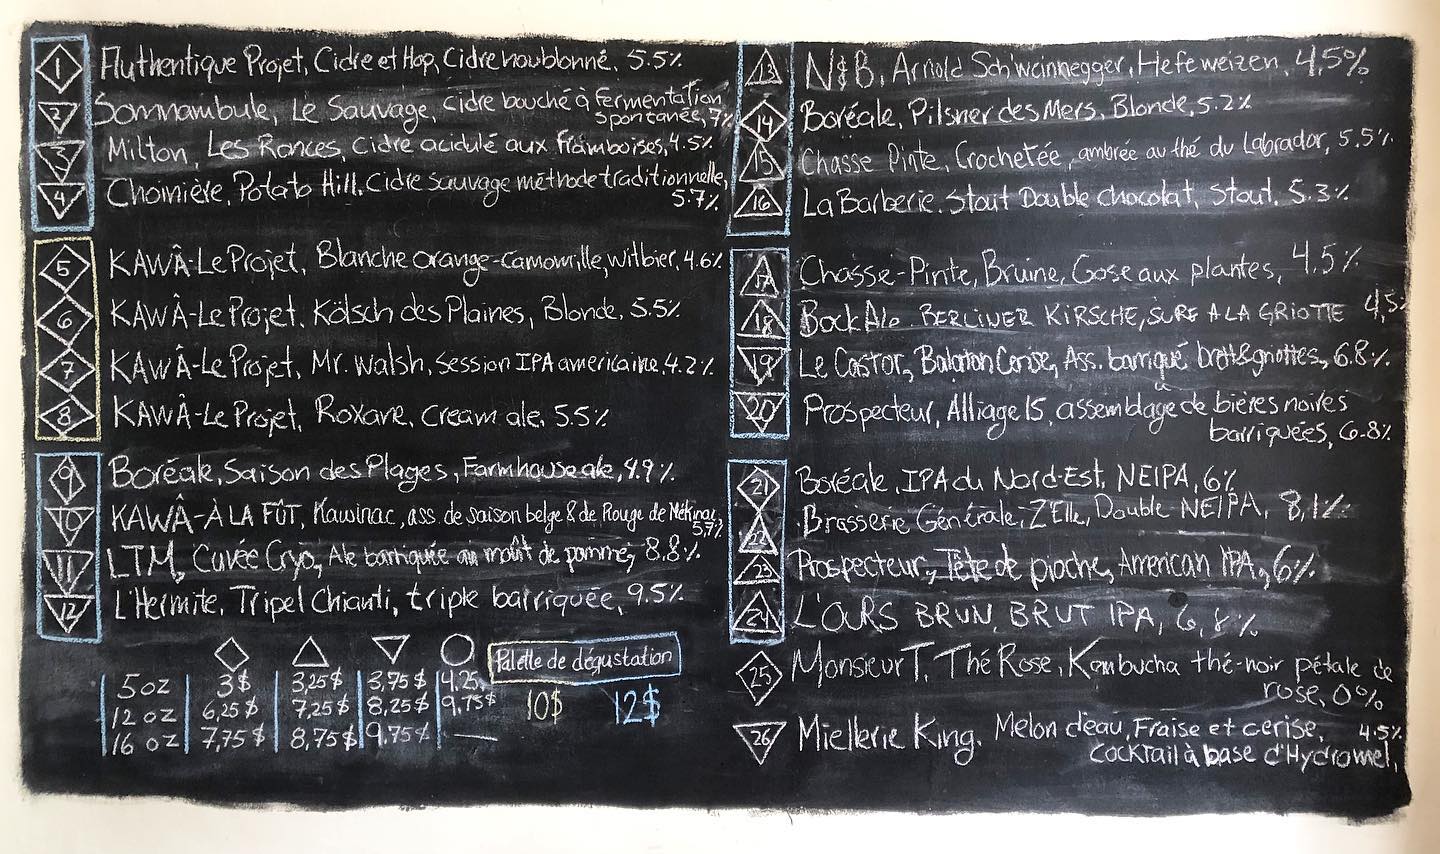 1 Authentique Projet, Cidre et Hop, Cidre houblonné, 5.5%
2 Somnambule, Le Sauvage, Cidre bouché à fermentation
spontanée, 7%
3 Milton, Les Ronces, Cidre acidulé aux framboises, 4.5%
4 Choinière, Potato Hill, Cidre sauvage méthode traditionnelle,
5.7%
5 KAWÂ-Le Projet, Blanche orange-camomille, witbier, 4.6%
6 KAWÂ-Le Projet, Kölsch des Plaines, Blonde, 5.5%
7 KAWÂ-Le Projet, Mr. Walsh, Session IPA américaine, 4.2%
8 KAWÂ-Le Projet, Roxane, Cream ale, 5.5%
9 Boréale, Saison des Plages, Farmhouse ale, 4.9%
10 KAWÂ-À LA FÛT, Kawinac, ass. de saison belge & de Rouge de Mékinac,
5,7%
11 LTM, Cuvée Cryo, Ale barriquée au moût de pomme, 8.8%
12 L'Hermite, Tripel Chianti, triple barriquée, 9.5%
Palette de dégustation
5 oz 3$ 3,25$ 3,75$ 4,25
12 oz 6,25$ 7,25$ 8,25$ 9,75$
16 oz 7,75$ 8,75$ 9,75$ —
10$ 12$
13 N&B, Arnold Schweinnegger, Hefeweizen, 4,5%
14 Boréale, Pilsner des Mers, Blonde, 5.2%
15 Chasse Pinte, Crochetée, ambrée au thé du Labrador, 5.5%
16 La Barberie, Stout Double chocolat, Stout, 5.3%
17 Chasse-Pinte, Bruine, Gose aux plantes, 4.5%
18 Bock Ale, BERLINER KIRSCHE, SURE A LA GRIOTTE 4,5%
19 Le Castor, Balaton Cerise, Ass. barriqué brett & griottes, 6.8%
20 Prospecteur, Alliage 15, assemblage de bières noires
barriquées, 6.8%
21 Boréale, IPA du Nord-Est, NEIPA, 6%
22 Brasserie Générale, ZElle, Double NEIPA, 8,1%
23 Prospecteur, Tête de pioche, American IPA, 6%
24 L'OURS BRUN, BRUT IPA, 6,8%
25 Monsieur T, Thé Rose, Kombucha thé-noir pétale de
rose, 0%
26 Miellerie King, Melon d'eau, Fraise et cerise, 4.5%
Cocktail à base d'Hydromel,